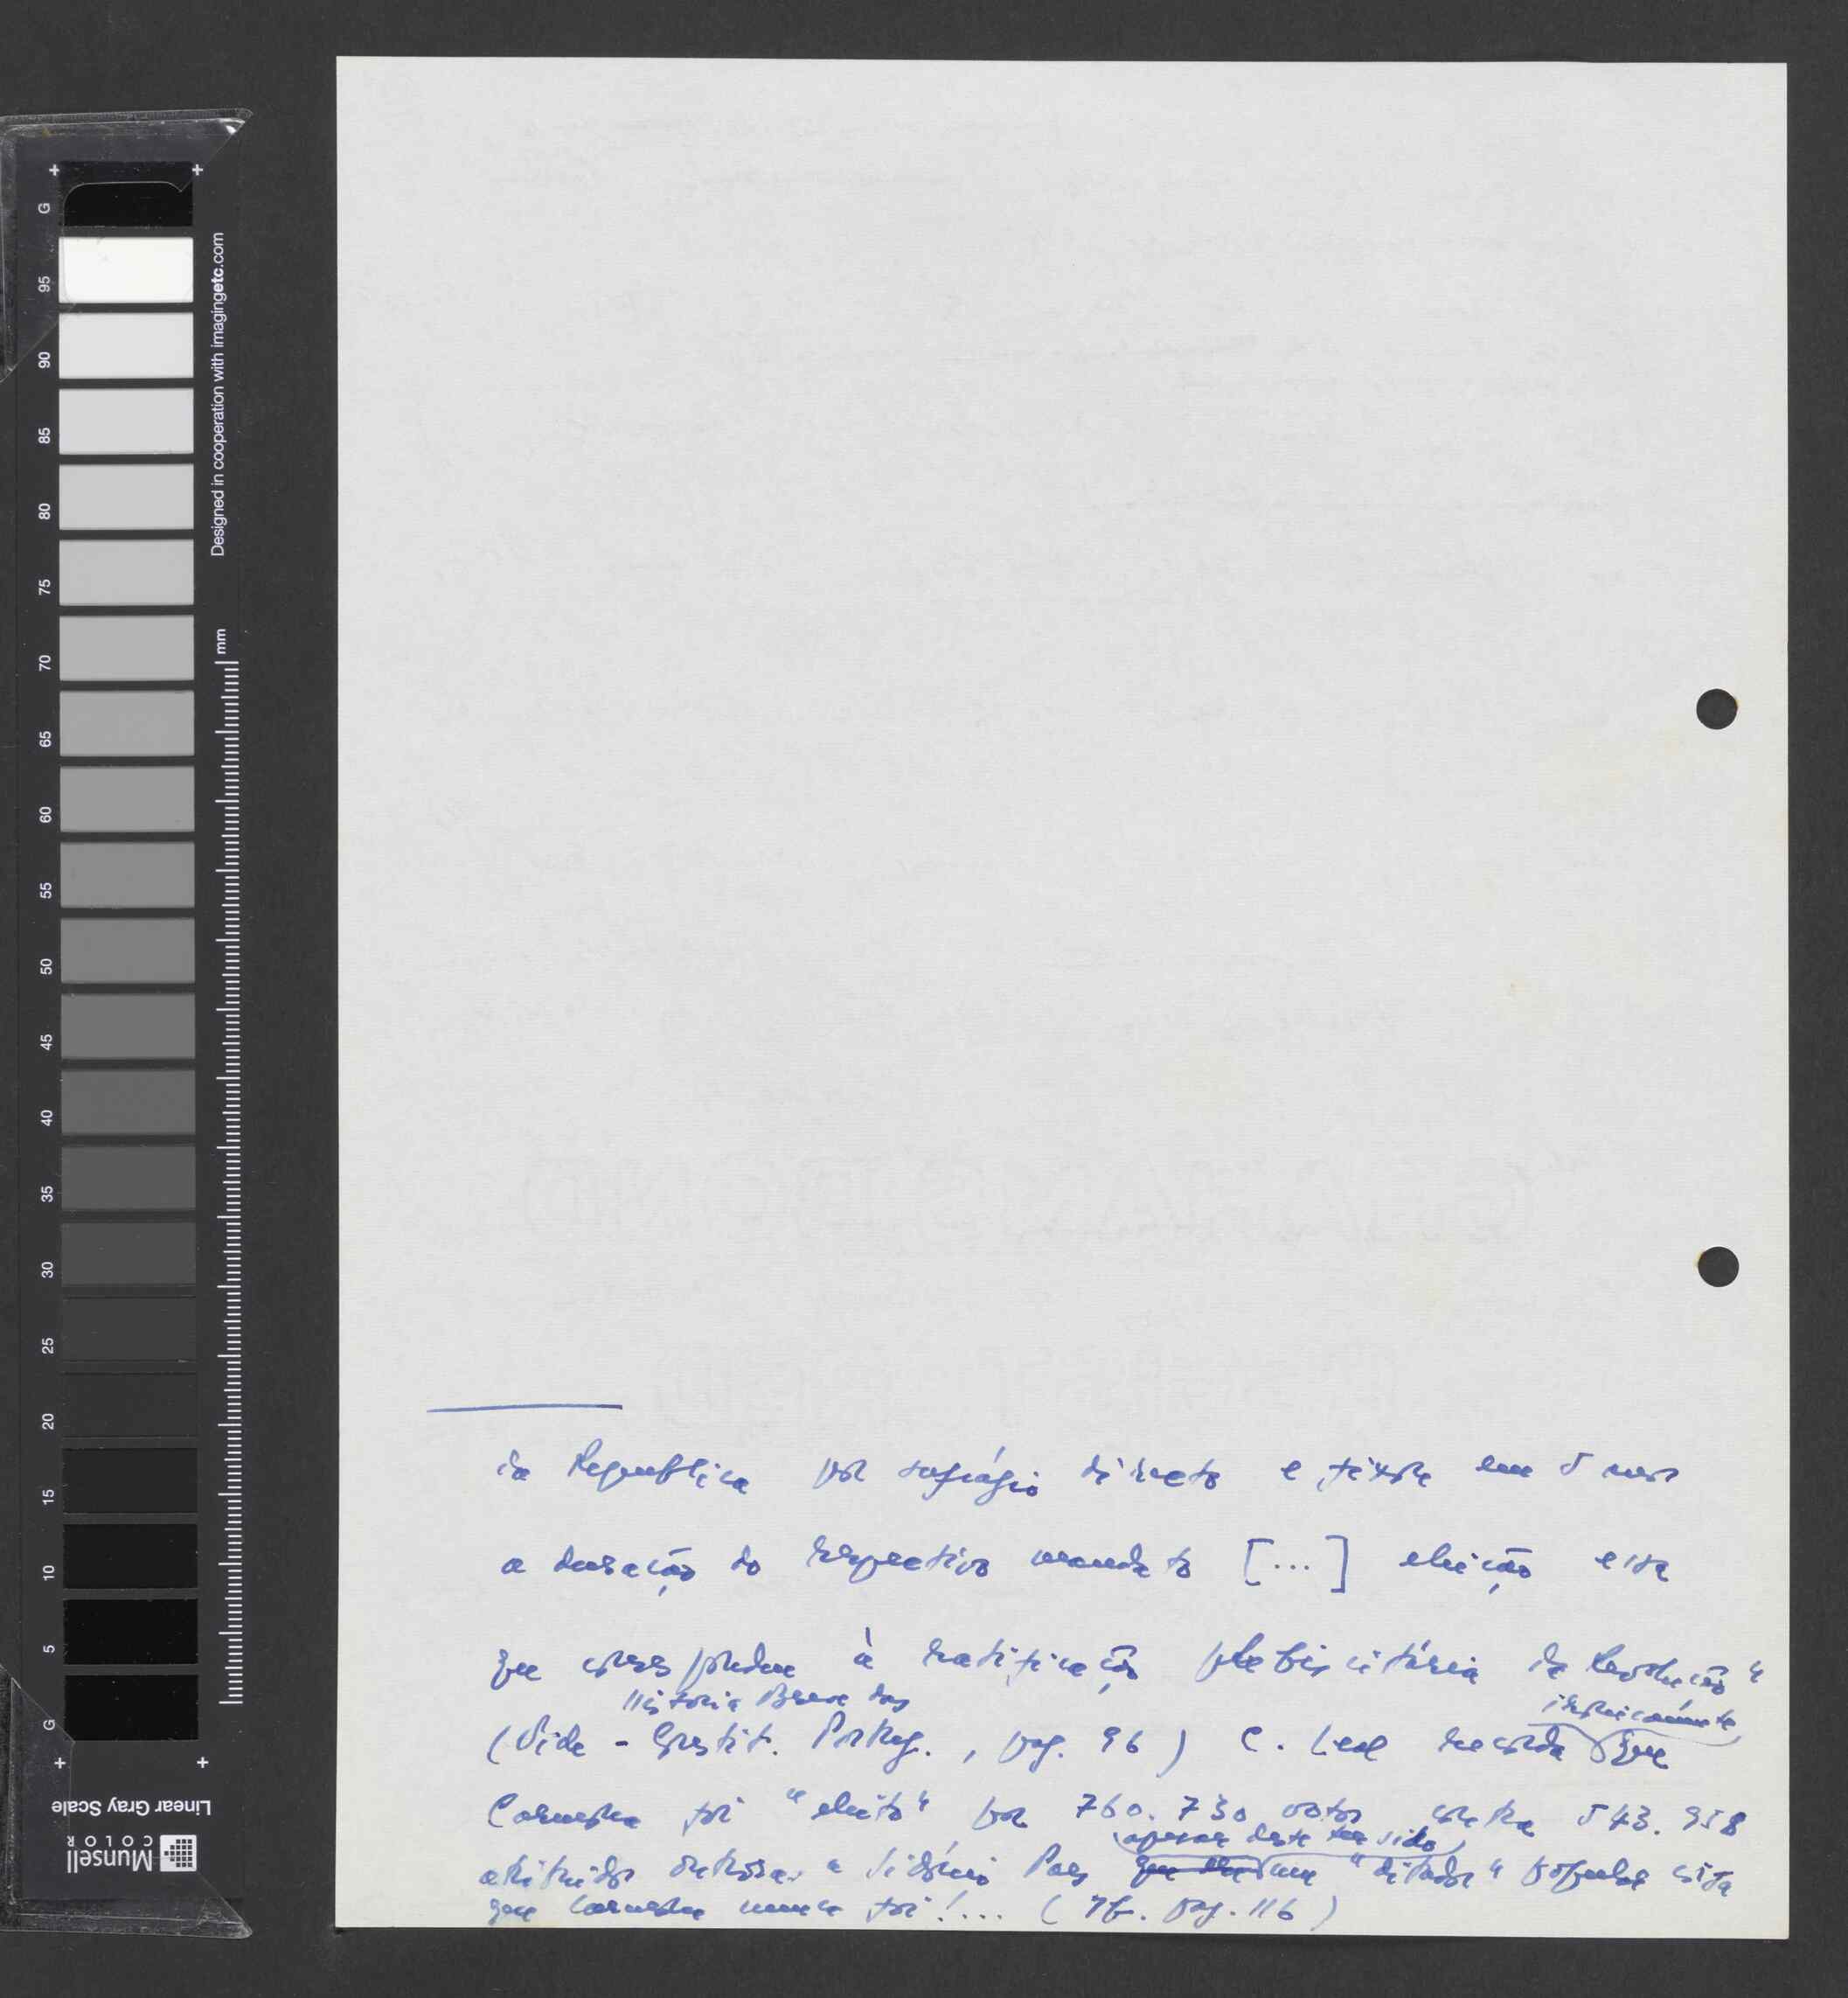 da Republica por sufrágio directo e fixou em 5 anos
a duração do respectivo mandato [...] eleição essa
que correspondeu à ratificação plebiscitária da Revolução"
Historia Breve das
ironicamente
(Vide - Constit. Portug., pag. 96) C. Leal recorda que
Carmona foi "eleito" por 760.730 votos contra 543.958
(apesar deste ter sido)
atribuidos outrora a Sidónio Pais um "ditador" popular coisa
que Carmona nunca foi!... (Ib. pag. 116)
G 95 90 85 80 75 70 65 60 55 50 45 40 35 30 25 20 15 10 5 G
Designed in cooperation with imagingetc.com
mm
Linear Gray Scale
Munsell
COLOR